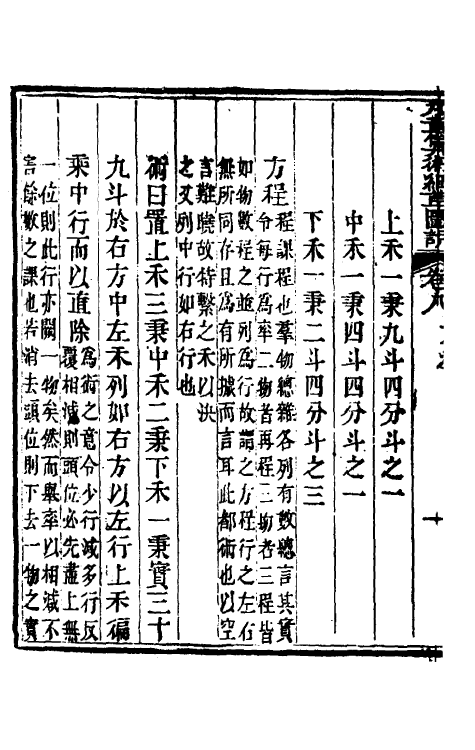 九章算術細草圖說 卷八
十
上禾一秉九斗四分斗之一
中禾一秉四斗四分斗之一
下禾一秉二斗四分斗之三
方程程課程也羣物總雜各列有數總言其實
令每行爲率二物者再程三物者三程皆
如物數程之並列爲行故謂之方程行之左右
無所同存且爲有所據而言耳此都術也以空
言難曉故特繫之禾以決
之又列中行如右行也
術曰置上禾三秉中禾二秉下禾一秉實三十
九斗於右方中左禾列如右方以左行上禾徧
乘中行而以直除爲術之意令少行減多行反
覆相減則頭位必先盡上無
一位則此行亦闕一物矣然而舉率以相減不
害餘數之課也若消去頭位則下去一物之實